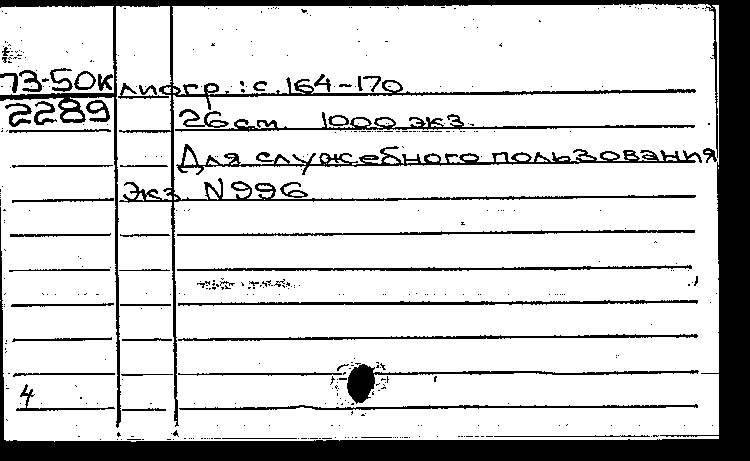 73-50К лиогр.: с. 164-170
2289 26 см. 1000 экз.
Для служебного пользования
Экз. N996
4